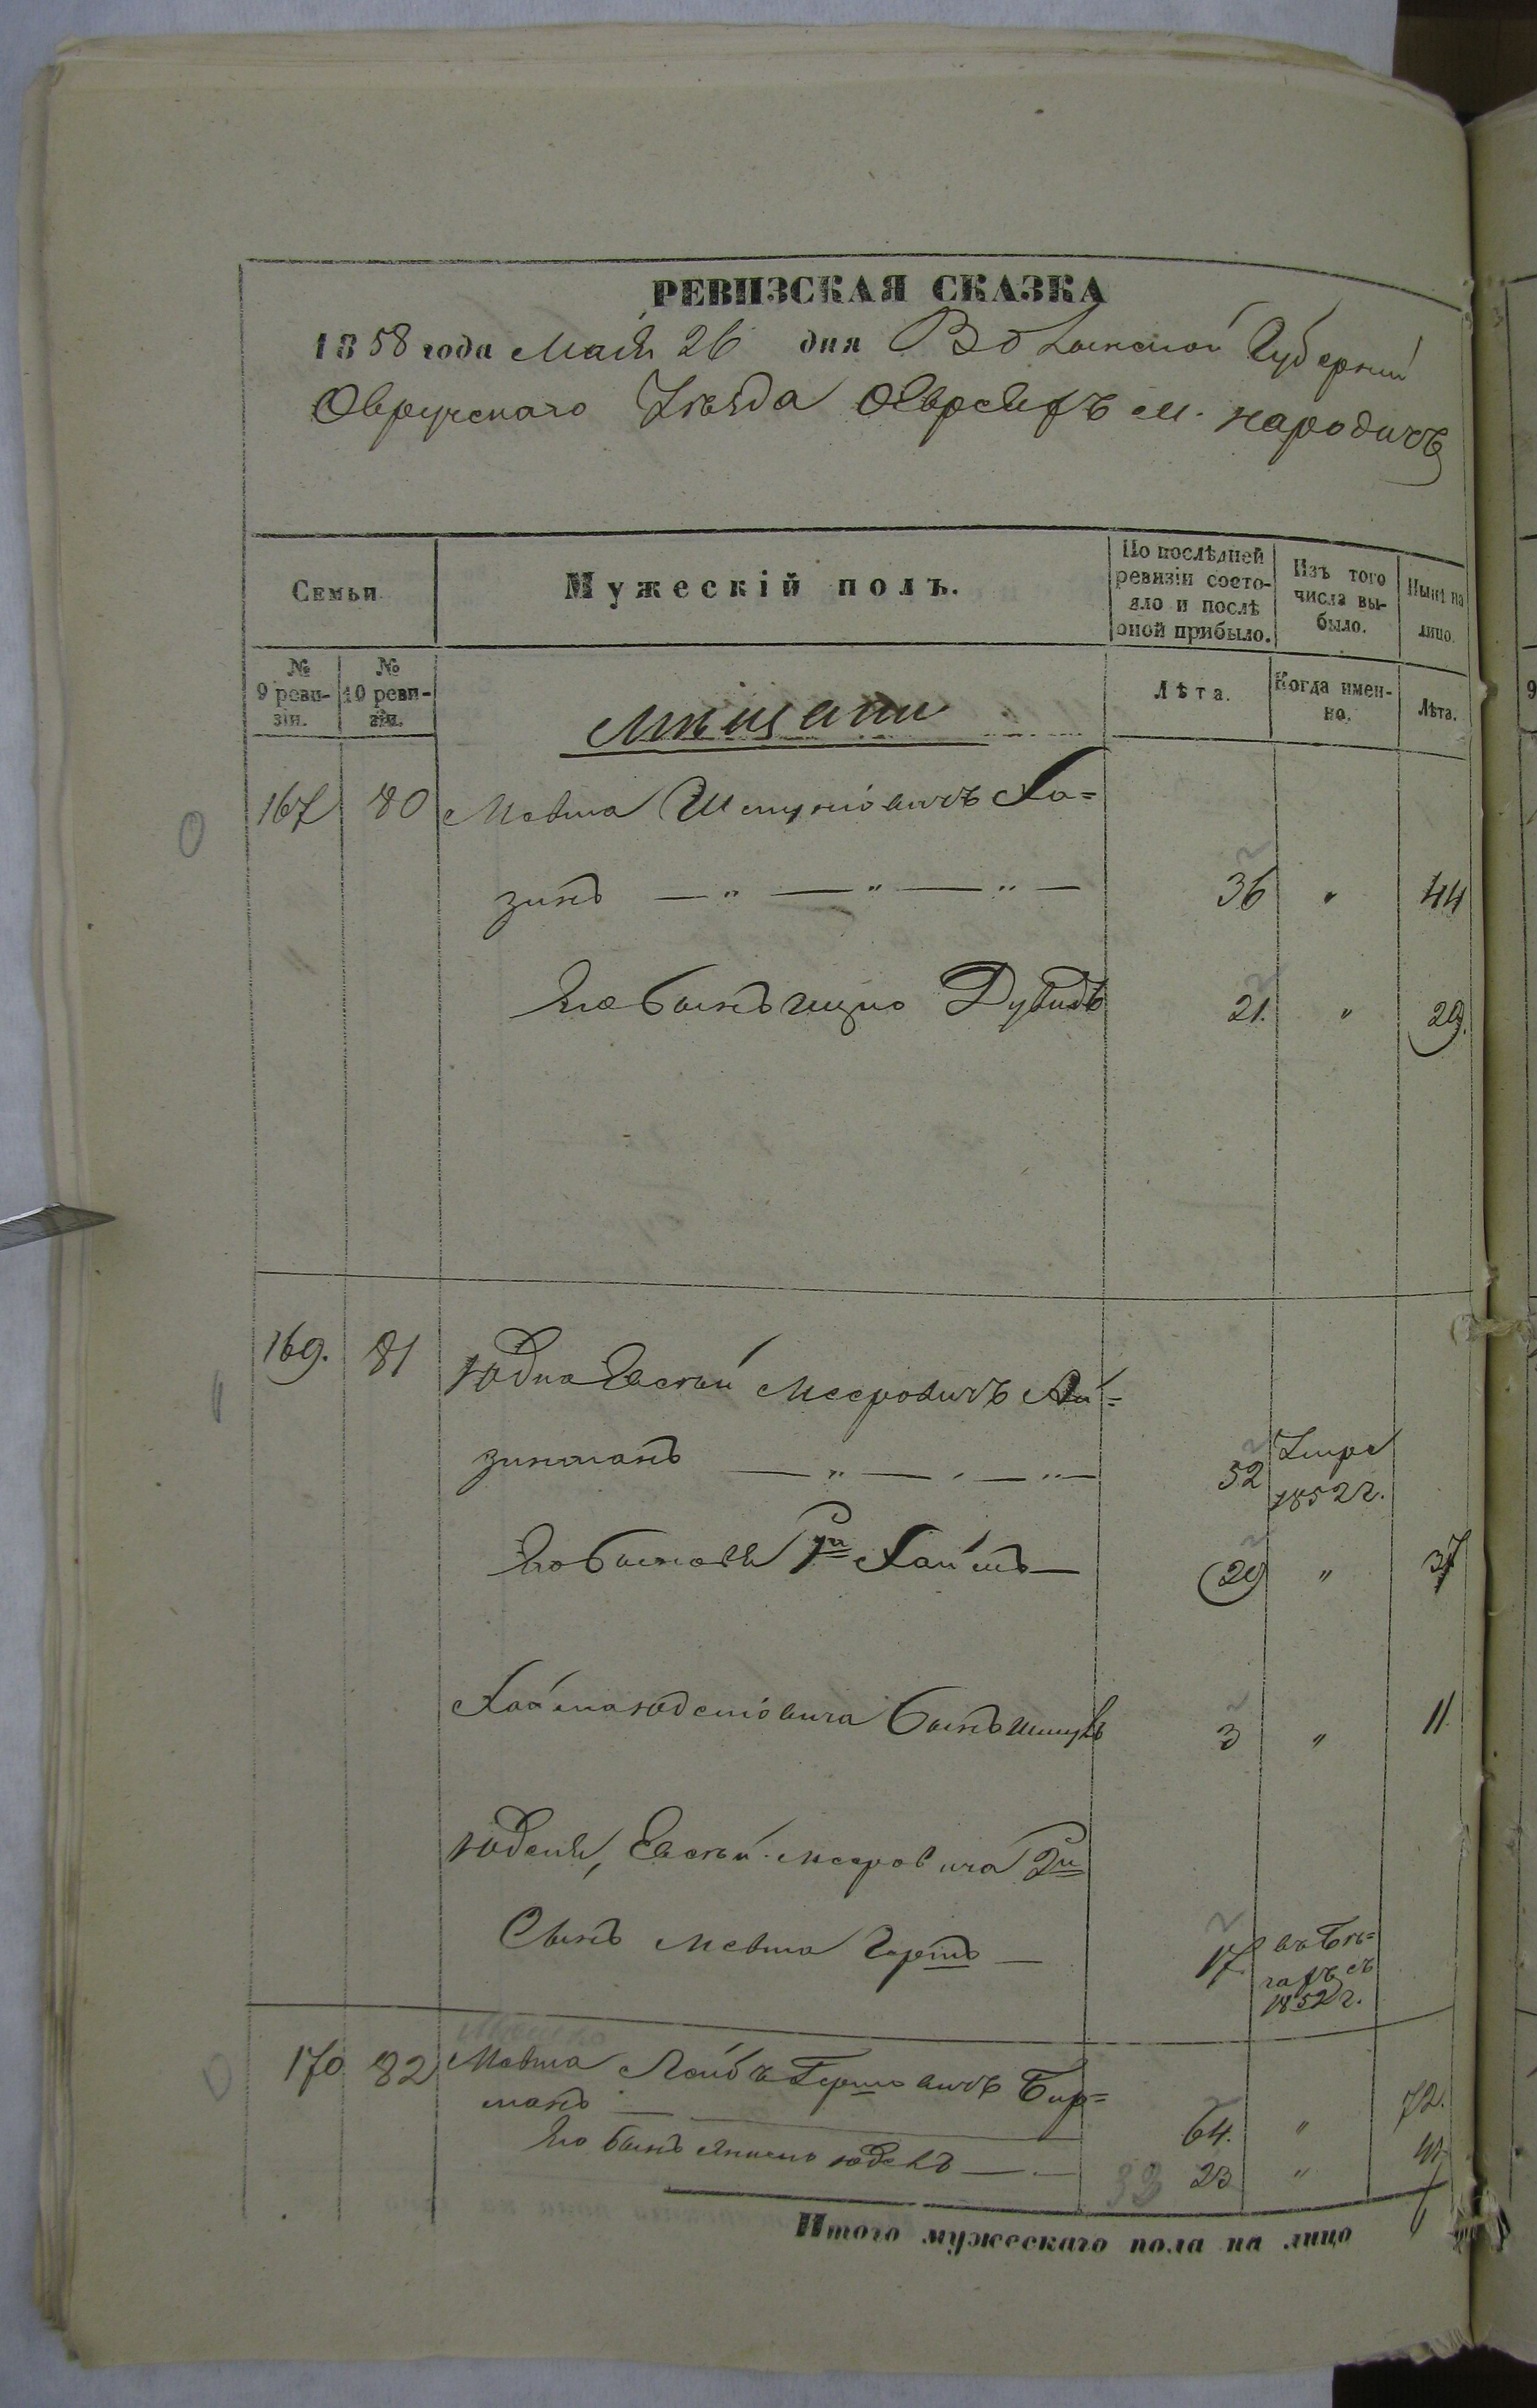 РЕВИЗСКАЯ СКАЗКА
1858 года Мая 26 дня Волынской Губернии
Овручскаго Уѣзда Оевреяхъ м. народичъ
Семьи
Мужескій полъ.
По послѣдней ревизіи состояло и послѣ оной прибыло.
Изъ того числа выбыло.
Нынѣ на лицо.
№ 9 ревизіи.
№ 10 ревизіи.
Лѣта.
Когда именно.
Лѣта.
Мѣщани
167 80 Мовша Шмуліовичъ Ха=
зинъ — „ — „ — „ — 36 „ 44
Его Сынъ Ицко Дувидъ 21. „ 29.
169. 81 Юдка Евсей Мееровичъ Ай=
зинманъ — „ — „ — „ — 52 Умре 1852 г.
Его Сыновья 1й Хаимъ — 29 „ 37
Хаима Юделіовича Сынъ 3 „ 11
Юделя, Евсей Мееровича 2й
Сынъ Мовша Гершъ — 17 въ Бѣгахъ съ 1852 г.
170 82 Мовша Лейба Гершовичъ Бир=
манъ — 64. „ 72.
Его Сынъ — 23 „
33
Итого мужескаго пола на лицо